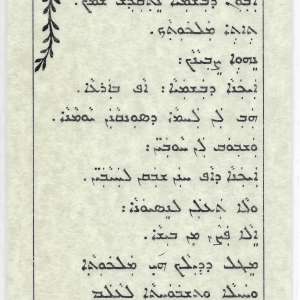 ܐܰܒܽܘܢ ܕܒܰܫܡܰܝܳܐ ܢܶܬܩܰܕܰܫ ܫܡܳܟ܂
ܬܺܐܬܶܐ ܡܰܠܟܽܘܬܳܟ܂
ܢܶܗܘܶܐ ܨܶܒܝܳܢܳܟ܃
ܐܰܝܟܰܢܳܐ ܕܒܰܫܡܰܝܳܐ܃ ܐܳܦ ܒܰܐܪܥܳܐ܂
ܗܰܒ ܠܰܢ ܠܰܚܡܳܐ ܕܣܽܘܢܩܳܢܰܢ ܝܰܘܡܳܢܳܐ܂
ܘܰܫܒܽܘܩ ܠܰܢ ܚܰܘܒܰܝ̈ܢ܃
ܐܰܝܟܰܢܳܐ ܕܳܐܦ ܚܢܰܢ ܫܒܰܩܢ ܠܚܰܝܳܒܰܝ̈ܢ܂
ܘܠܳܐ ܬܰܥܠܰܢ ܠܢܶܣܝܽܘܢܳܐ܃
ܐܶܠܳܐ ܦܰܨܳܢ ܡܶܢ ܒܺܝܫܳܐ܂
ܡܶܛܽܠ ܕܕܺܝܠܳܟ ܗ̱ܝ ܡܰܠܟܽܘܬܳܐ
ܘܚܰܝܠܳܐ ܘܬܶܫܒܽܘܚܬܳܐ ܠܥܳܠܰܡ